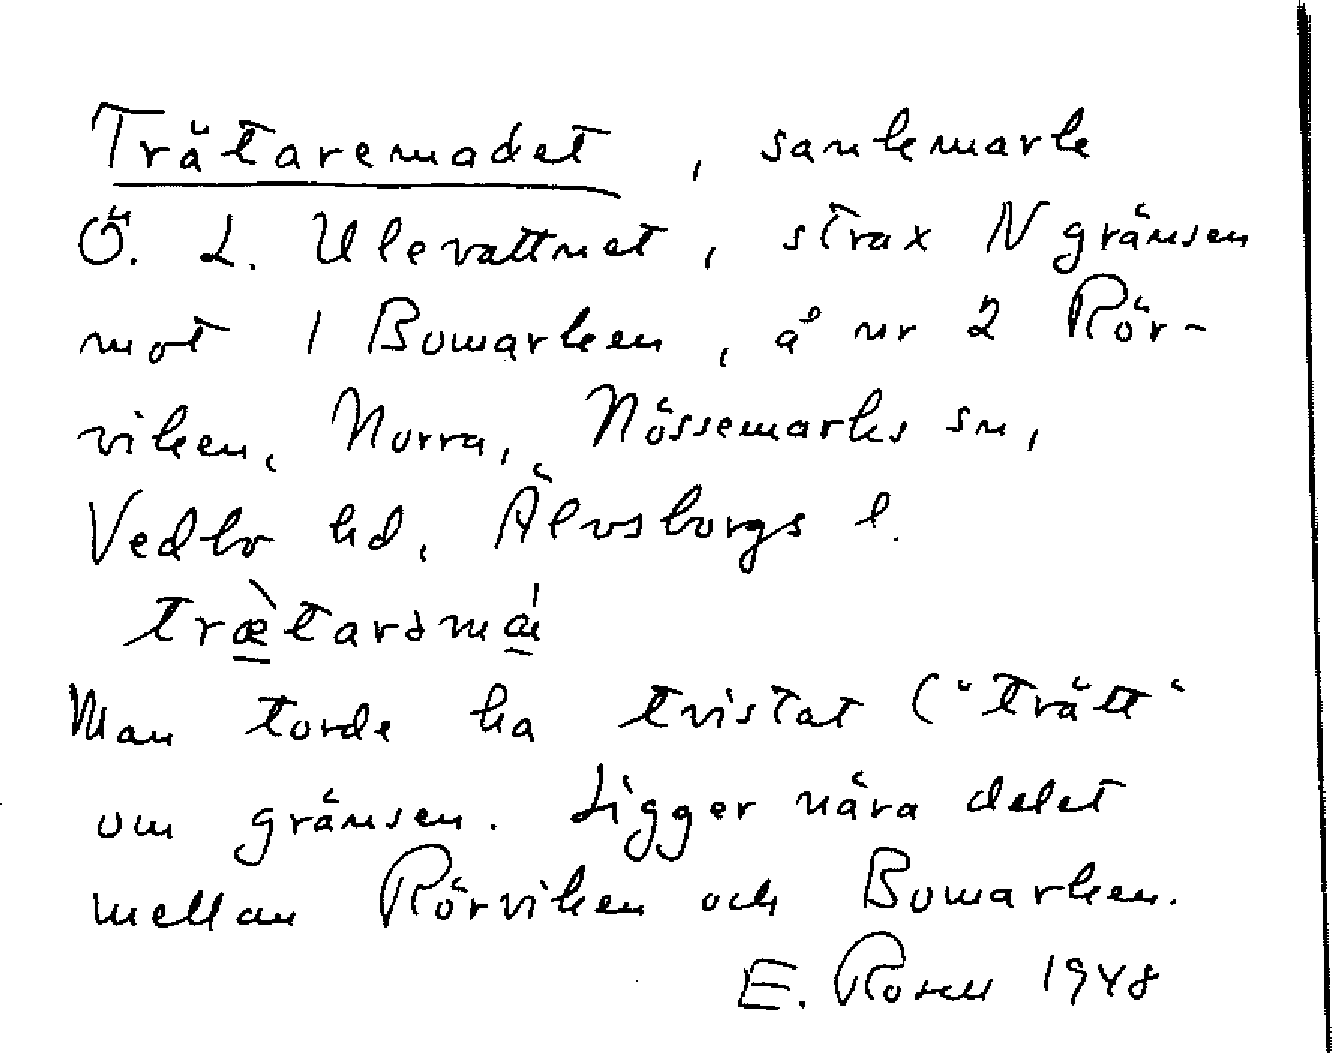 Trätaremadet, sankmark
Ö. L. Ulevattnet, strax N gränsen
mot 1 Bomarken, å nr 2 Rör-
viken, Norra, Nössemarks sn,
Vedbo hd, Älvsborgs l.
træ̀tarəmá
Man torde ha tvistat ("trätt"
om gränsen. Ligger nära delet
mellan Rörviken och Bomarken.
E. Rosell 1948